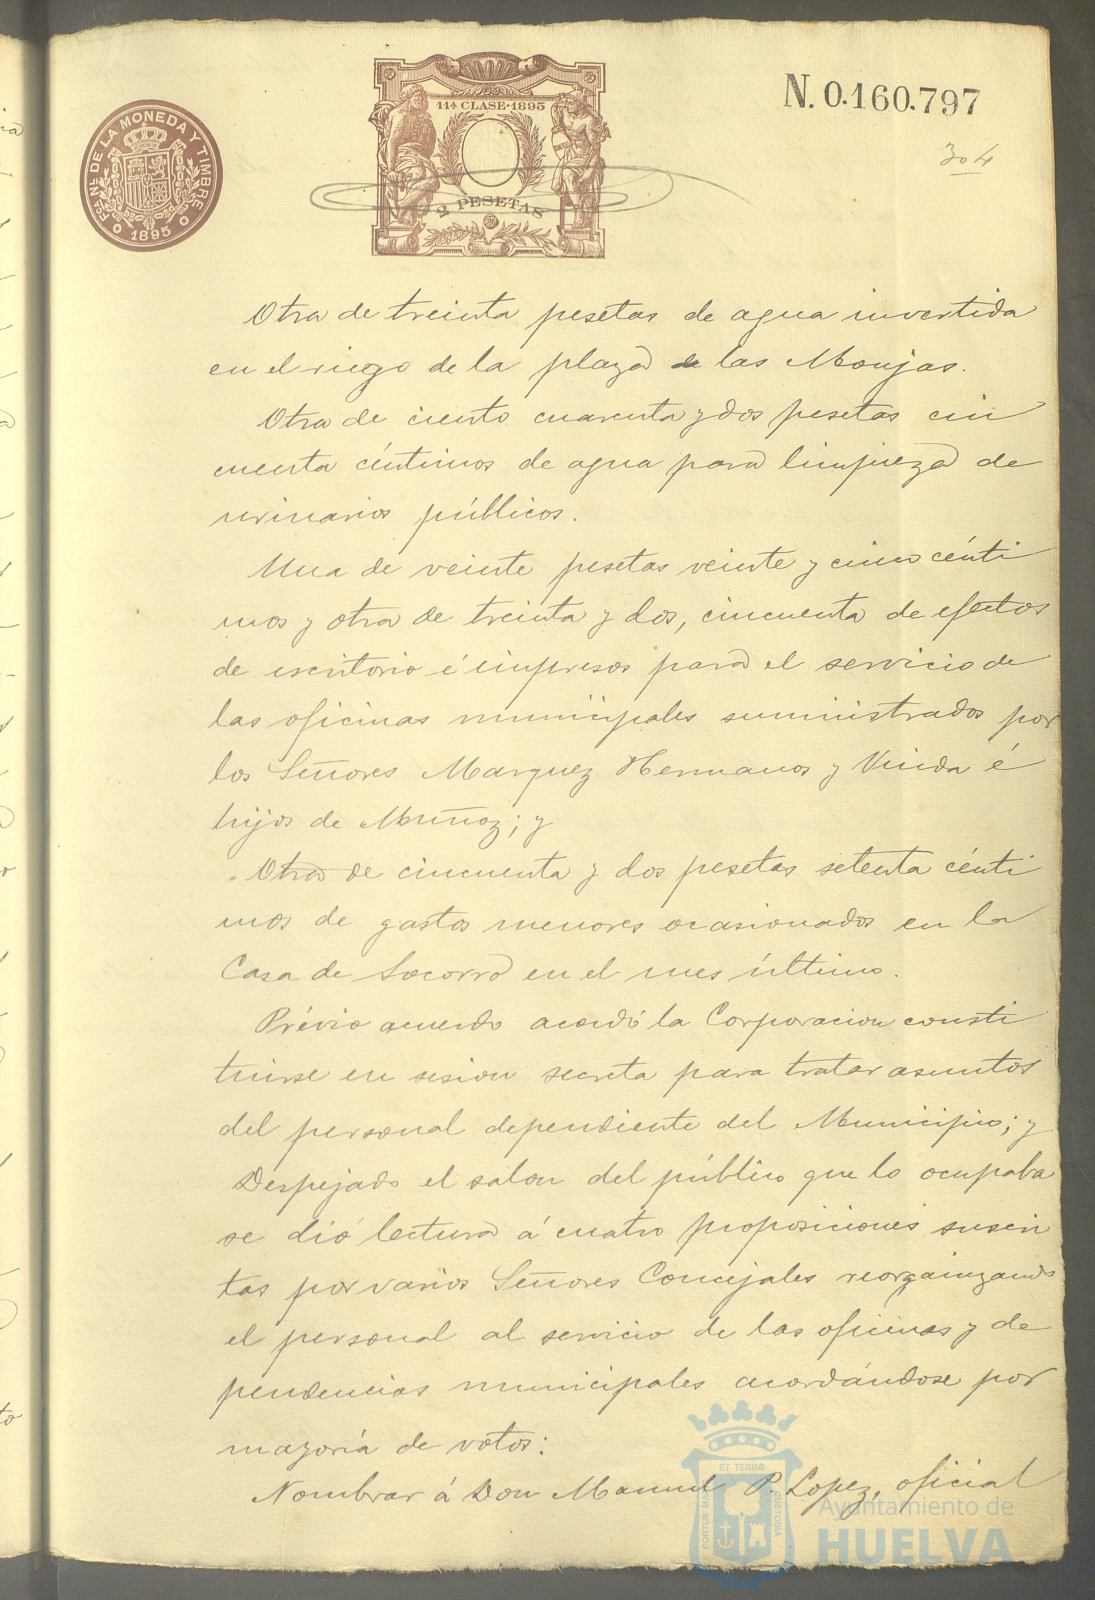 Fca. NL. DE LA MONEDA Y TIMBRE
1895
11ª CLASE·1895
2 PESETAS
N. 0.160.797
304
Otra de treinta pesetas de agua invertida
en el riego de la plaza de las Monjas.
Otra de ciento cuarenta y dos pesetas cin
cuenta céntimos de agua para limpieza de
urinarios públicos.
Una de veinte pesetas veinte y cinco cénti
mos y otra de treinta y dos, cincuenta de efectos
de escritorio é impresos para el servicio de
las oficinas municipales suministrados por
los Señores Marquez Hermanos y Viuda é
hijos de Muñoz; y
Otra de cincuenta y dos pesetas setenta cénti
mos de gastos menores ocasionados en la
Casa de Socorro en el mes último.
Prévio acuerdo acordó la Corporacion consti
tuirse en sesion secreta para tratar asuntos
del personal dependiente del Municipio; y
Despejado el salon del público que lo ocupaba
se dió lectura á cuatro proposiciones suscri
tas por varios Señores Concejales reorganizando
el personal al servicio de las oficinas y de
pendencias municipales acordándose por
mayoría de votos:
Nombrar á Don Manuel P. Lopez, oficial
PORTUS MARIS ET TERRÆ CUSTODIA
Ayuntamiento de
HUELVA